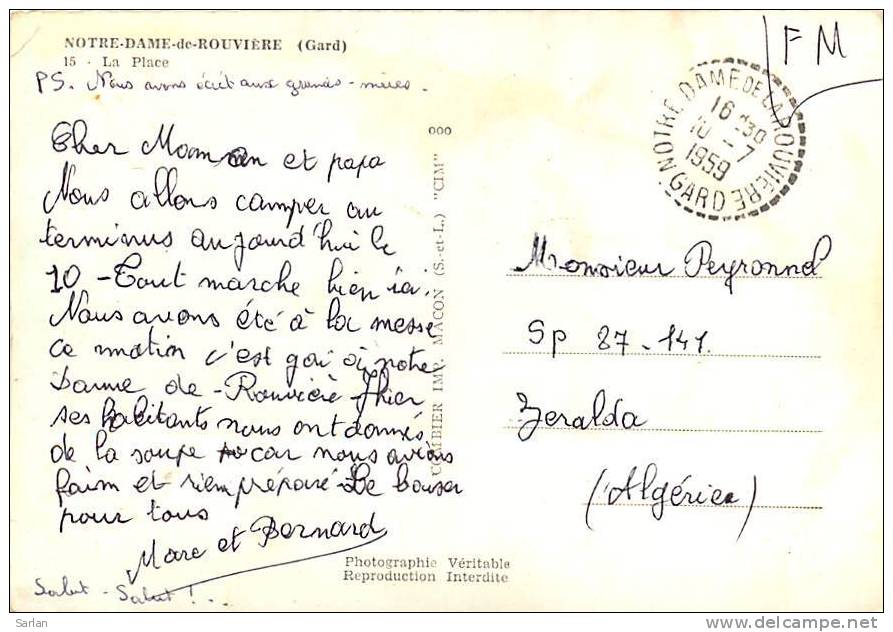 NOTRE-DAME-de-ROUVIÈRE (Gard)
15 - La Place
PS. Nous avons écrit aux grands-mères.
Cher Maman et papa
Nous allons camper au
terminus aujourd'hui le
10 - Tout marche bien ici.
Nous avons été à la messe
ce matin c'est gai à notre
Dame de-Rouvière - hier
ses habitants nous ont donnés
de la soupe car nous avions
faim et rien préparé - De
pour tous
Marc et Bernard
Salut - Salut !..
COMBIER IMP. MACON (S.-et-L.) "CIM"
Photographie Véritable
Reproduction Interdite
FM
NOTRE DAME DE LA ROUVIÈRE
16 30
10 - 7
1959
GARD
Monsieur Peyronnel
Sp 87-141.
Zeralda
(Algérie)
Sarlan
http://www.delcampe.net